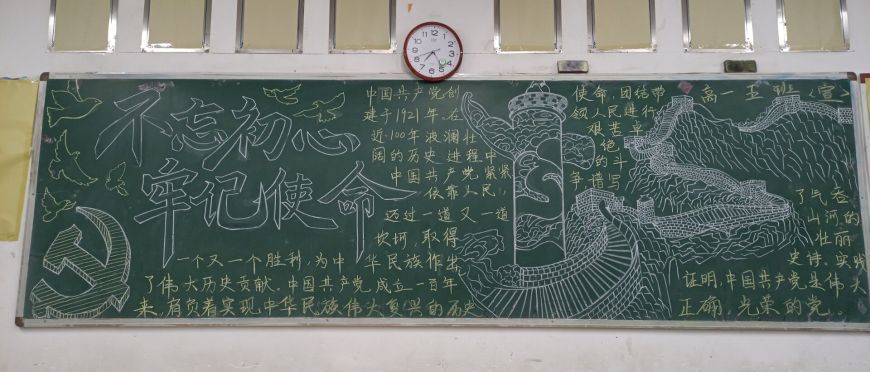 不忘初心
牢记使命
中国共产党创
建于1921年,在
近100年波澜壮
阔的历史进程中
中国共产党,紧紧
依靠人民,
迈过一道又一道
坎坷,取得
一个又一个胜利,为中华民族作出
了伟大历史贡献。中国共产党成立一百年
来,肩负着实现中华民族伟大复兴的历史
使命,团结带
领人民进行
艰苦卓
绝
的斗
争,谱写
了气吞
山河的
壮丽
史诗。实践
证明,中国共产党是伟大
正确,光荣的党。
高一五班(宣)